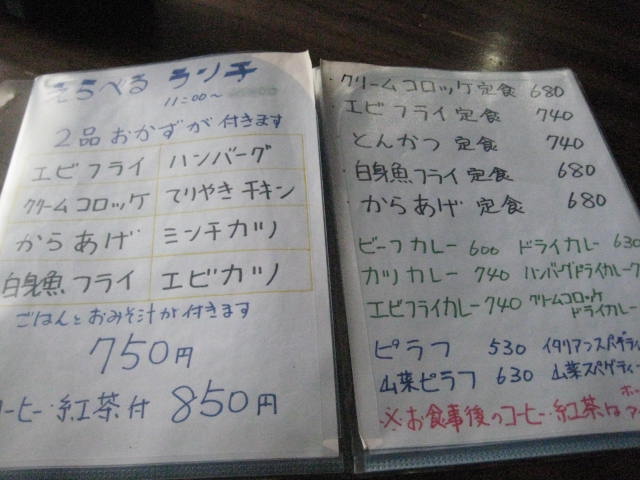 えらべる ランチ
11:00〜
2品 おかずが 付きます
エビフライ ハンバーグ
クリームコロッケ てりやきチキン
からあげ ミンチカツ
白身魚フライ エビカツ
ごはんとおみそ汁が付きます
750円
コーヒー・紅茶付 850円
・クリームコロッケ定食 680
・エビフライ定食 740
・とんかつ定食 740
・白身魚フライ定食 680
・からあげ定食 680
ビーフカレー 600 ドライカレー 630
カツカレー 740 ハンバーグドライカレー
エビフライカレー 740 クリームコロッケ
ドライカレー
ピラフ 530 イタリアンスパゲティ
山菜ピラフ 630 山菜スパゲティー
※お食事後のコーヒー・紅茶は